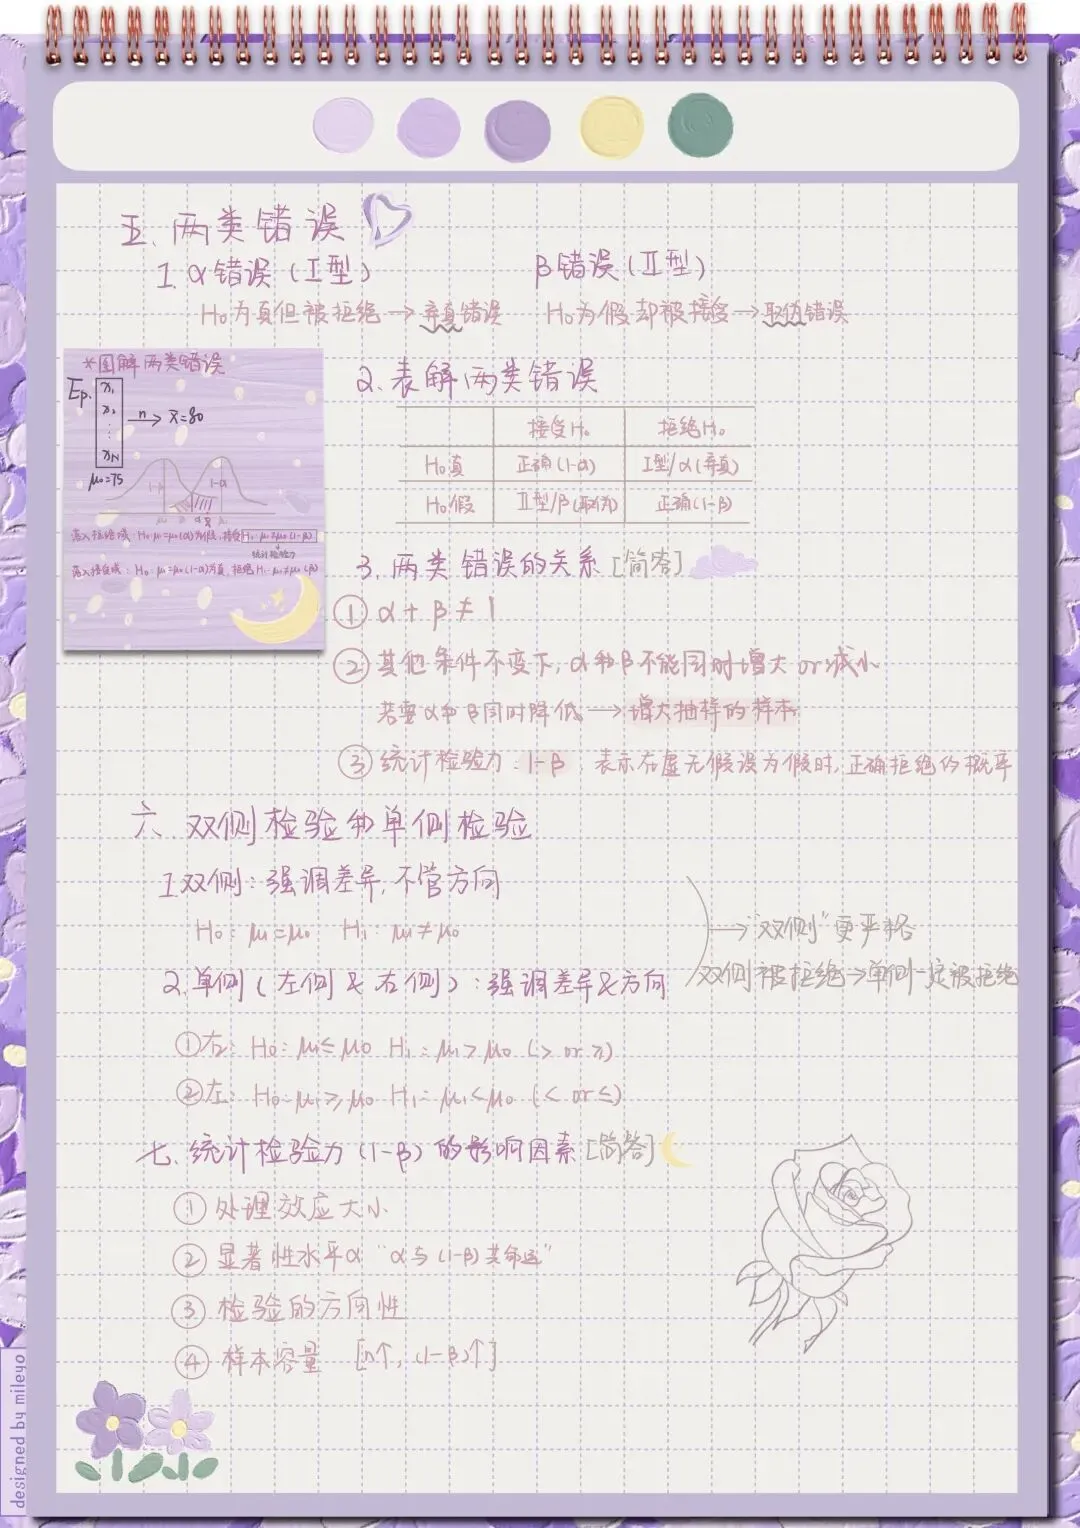 五、两类错误
1. α错误(I型) β错误(II型)
H₀为真但被拒绝→弃真错误 H₀为假却被接受→取伪错误
*图解两类错误
Ep. x₁
x₂
⋮
xN
n → x̄=80
μ₀=75
1-β 1-α
落入拒绝域:H₀:μ₁=μ₀(α)为假,接受H₁:μ₁≠μ₀(1-β)
统计检验力
落入接受域:H₀:μ₁=μ₀(1-α)为真,拒绝H₁:μ₁≠μ₀(β)
2. 表解两类错误
接受H₀ 拒绝H₀
H₀真 正确(1-α) I型/α(弃真)
H₀假 II型/β(取伪) 正确(1-β)
3. 两类错误的关系[简答]
① α+β≠1
② 其他条件不变下,α和β不能同时增大or减小
若要α和β同时降低→增大抽样的样本
③ 统计检验力:1-β:表示在虚无假设为假时,正确拒绝的概率
六、双侧检验和单侧检验
1. 双侧:强调差异,不管方向
H₀:μ₁=μ₀ H₁:μ₁≠μ₀
→"双侧"更严格
2. 单侧(左侧&右侧):强调差异&方向
双侧被拒绝→单侧一定被拒绝
①右:H₀:μ₁≤μ₀ H₁:μ₁>μ₀ (> or ≥)
②左:H₀:μ₁≥μ₀ H₁:μ₁<μ₀ (< or ≤)
七、统计检验力(1-β)的影响因素[简答]
① 处理效应大小
② 显著性水平α "α与(1-β)共命运"
③ 检验的方向性
④ 样本容量 [n↑,(1-β)↑]
designed by mileyo